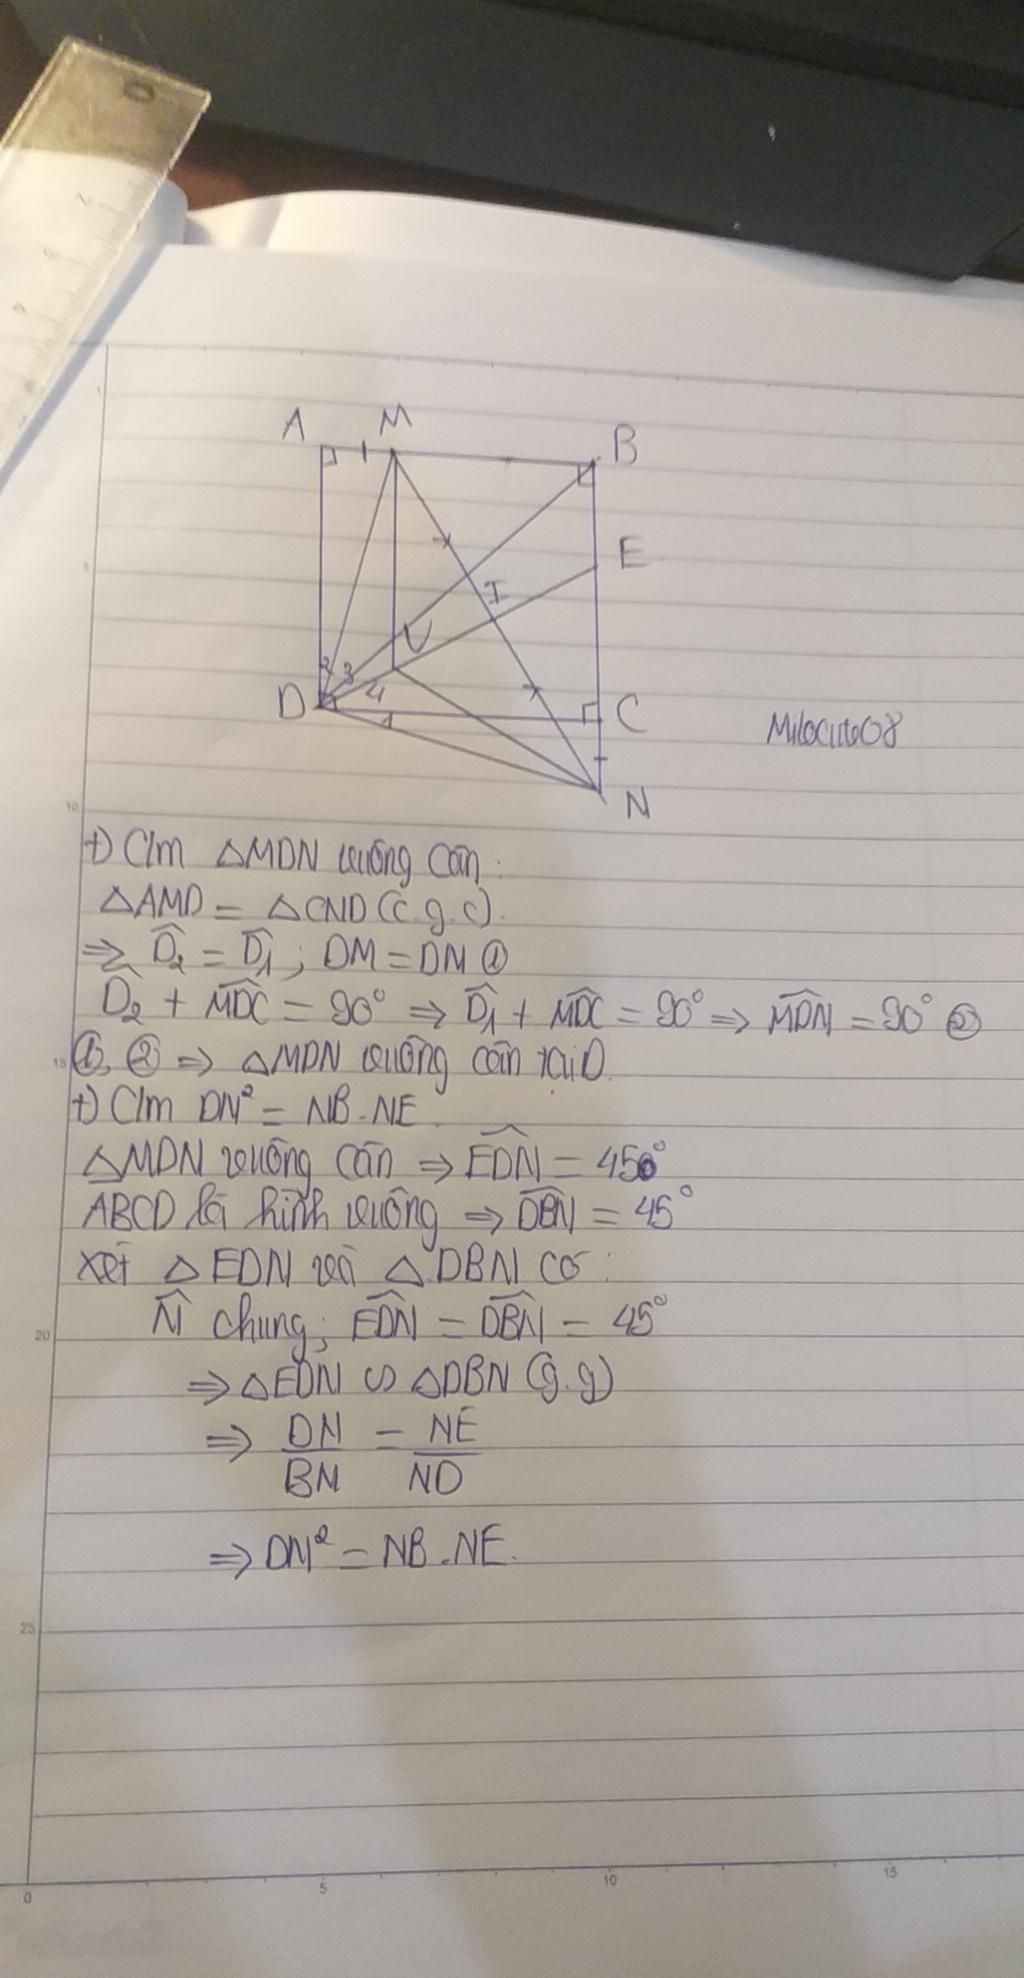 A M B
E
I
V
2 3
D 4
1 C
N
Milocute08
+) C/m △MDN vuông cân:
△AMD = △CND (c.g.c).
⇒ D̂₂ = D̂₁; DM = DN ①
D̂₂ + M̂DC = 90° ⇒ D̂₁ + M̂DC = 90° ⇒ M̂DN = 90° ②
①, ② ⇒ △MDN vuông cân tại D
+) C/m DN² = NB.NE.
△MDN vuông cân ⇒ ÊDN = 45°
ABCD là hình vuông ⇒ D̂BN = 45°
Xét △EDN và △DBN có:
N̂ chung; ÊDN = D̂BN = 45°
⇒ △EDN ∽ △DBN (g.g)
⇒ DN/BN = NE/ND
⇒ DN² = NB.NE.